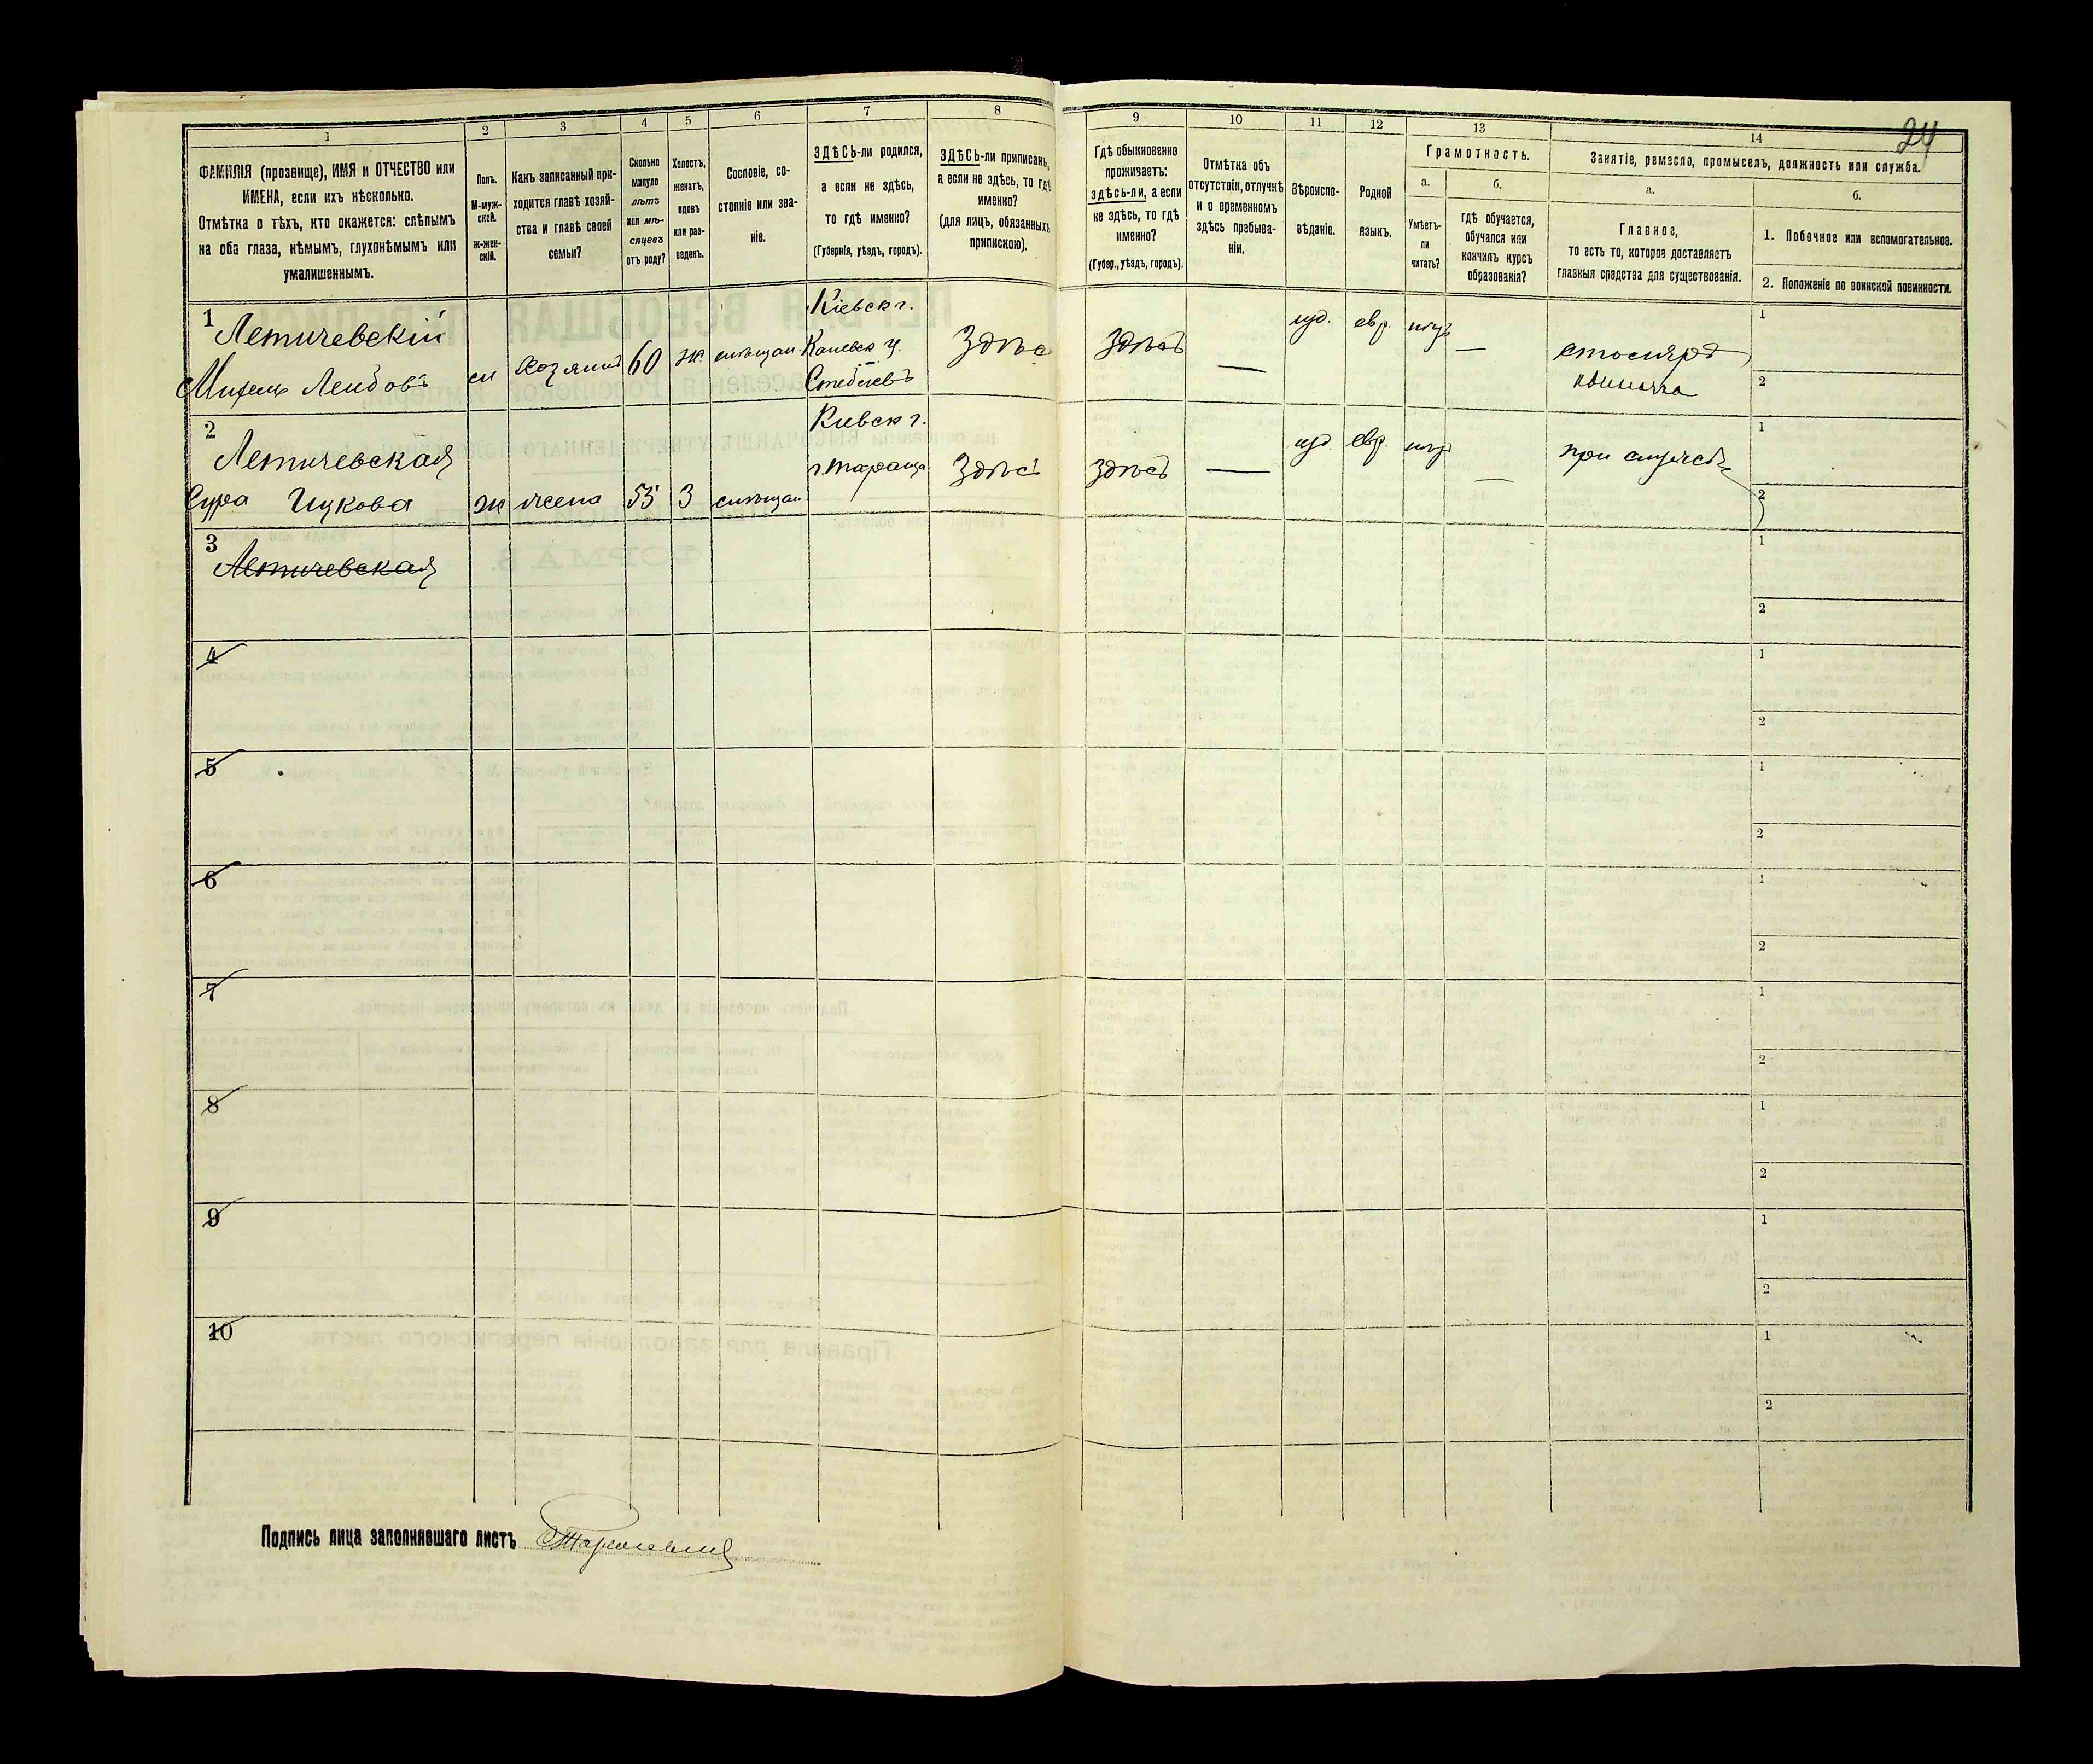 24
1 2 3 4 5 6 7 8 9 10 11 12 13 14
ФАМИЛІЯ (прозвище), ИМЯ и ОТЧЕСТВО или
ИМЕНА, если ихъ нѣсколько.
Отмѣтка о тѣхъ, кто окажется: слѣпымъ
на оба глаза, нѣмымъ, глухонѣмымъ или
умалишеннымъ.
Полъ.
М-муж-
ской.
ж-жен-
скій.
Какъ записанный при-
ходится главѣ хозяй-
ства и главѣ своей
семьи?
Сколько
минуло
лѣтъ
или мѣ-
сяцевъ
отъ роду?
Холостъ,
женатъ,
вдовъ
или раз-
веденъ.
Сословіе, со-
стояніе или зва-
ніе.
ЗДѢСЬ-ли родился,
а если не здѣсь,
то гдѣ именно?
(Губернія, уѣздъ, городъ).
ЗДѢСЬ-ли приписанъ,
а если не здѣсь, то гдѣ
именно?
(для лицъ, обязанныхъ
припискою).
Гдѣ обыкновенно
проживаетъ:
здѣсь-ли, а если
не здѣсь, то гдѣ
именно?
(Губер., уѣздъ, городъ).
Отмѣтка объ
отсутствіи, отлучкѣ
и о временномъ
здѣсь пребыва-
ніи.
Вѣроиспо-
вѣданіе.
Родной
языкъ.
Грамотность.
а.
Умѣетъ-
ли
читать?
б.
гдѣ обучается,
обучался или
кончилъ курсъ
образованія?
Занятіе, ремесло, промыселъ, должность или служба.
а.
Главное,
то есть то, которое доставляетъ
главныя средства для существованія.
б.
1. Побочное или вспомогательное.
2. Положеніе по воинской повинности.
1 Летичевскій
Лейбовъ
Хозяинъ 60 ж.
Кіевск г.
Каневск у.
Стеблевъ
Здѣс
Здѣсь
—
іуд. евр.
—
столяръ
1
2
2 Летичевская
Сура Ицкова
ж жена 55 З
Кіевск г.
г. Тараща
Здѣсь
Здѣсь
—
іуд евр.
—
при
1
2
3 Летичевская
1
2
4
1
2
5
1
2
6
1
2
7
1
2
8
1
2
9
1
2
10
1
2
Подпись лица заполнявшаго листъ